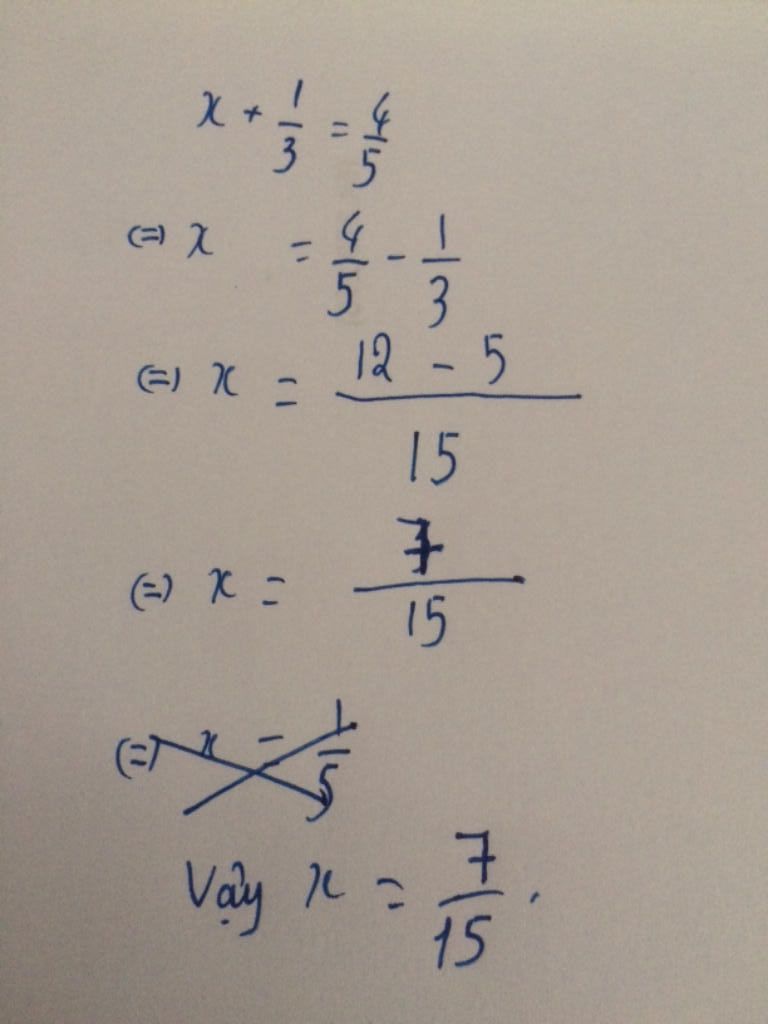 x + 1/3 = 4/5
(=) x = 4/5 - 1/3
(=) x = (12 - 5)/15
(=) x = 7/15
(=) x - 1/5
Vậy x = 7/15.